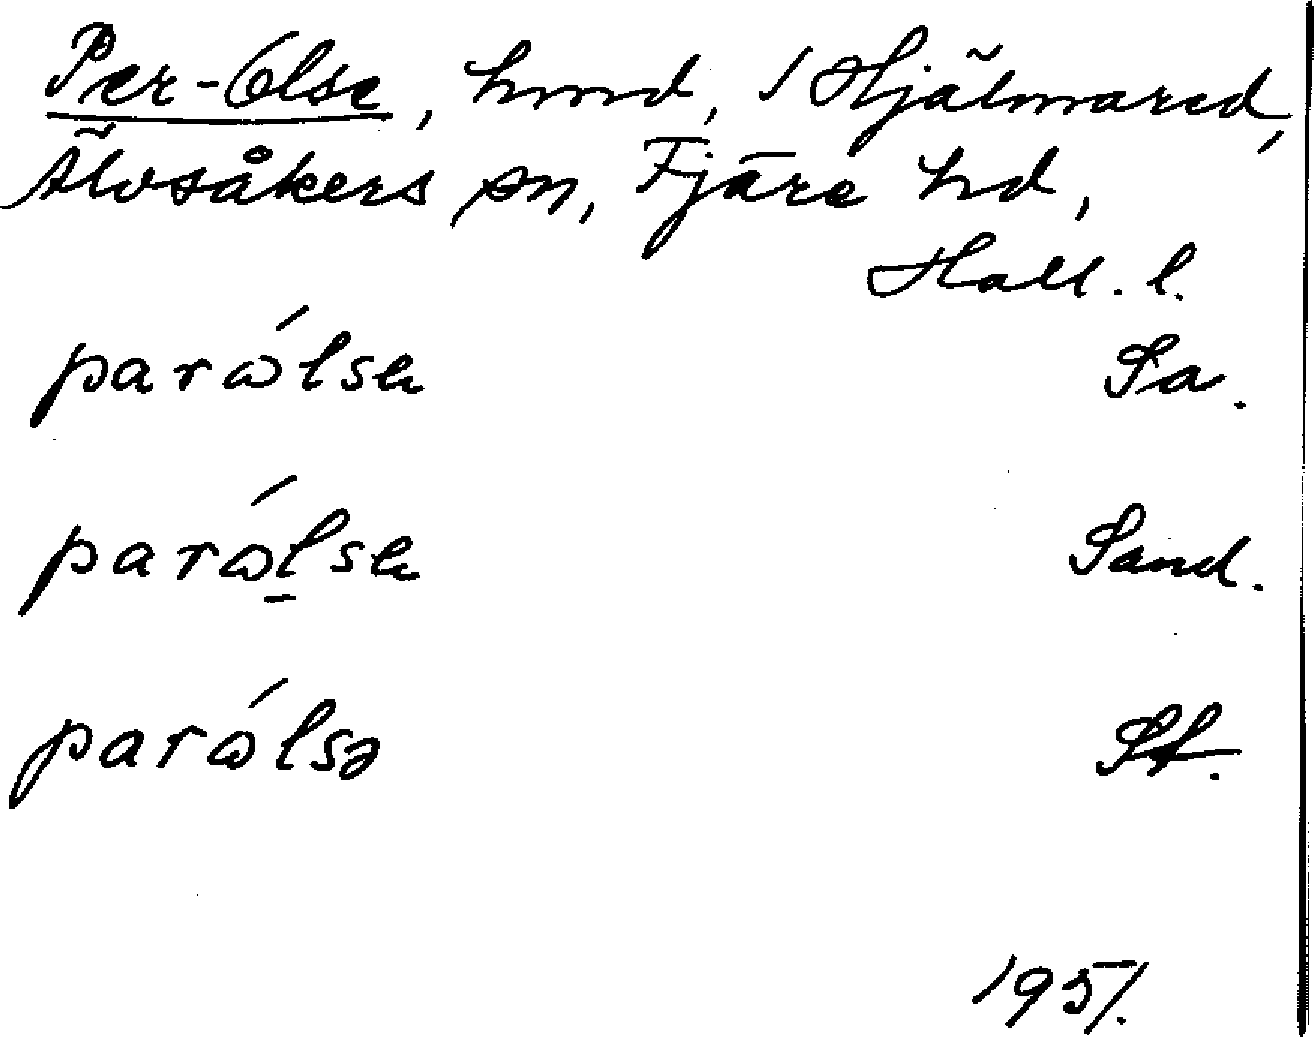 Per-Olse, hmd, 1 Hjälmared,
Älvsåkers sn, Fjäre hd,
Hall. l.
parωlsa Sa.
parωlsa Sand.
parωlsə St.
1951.